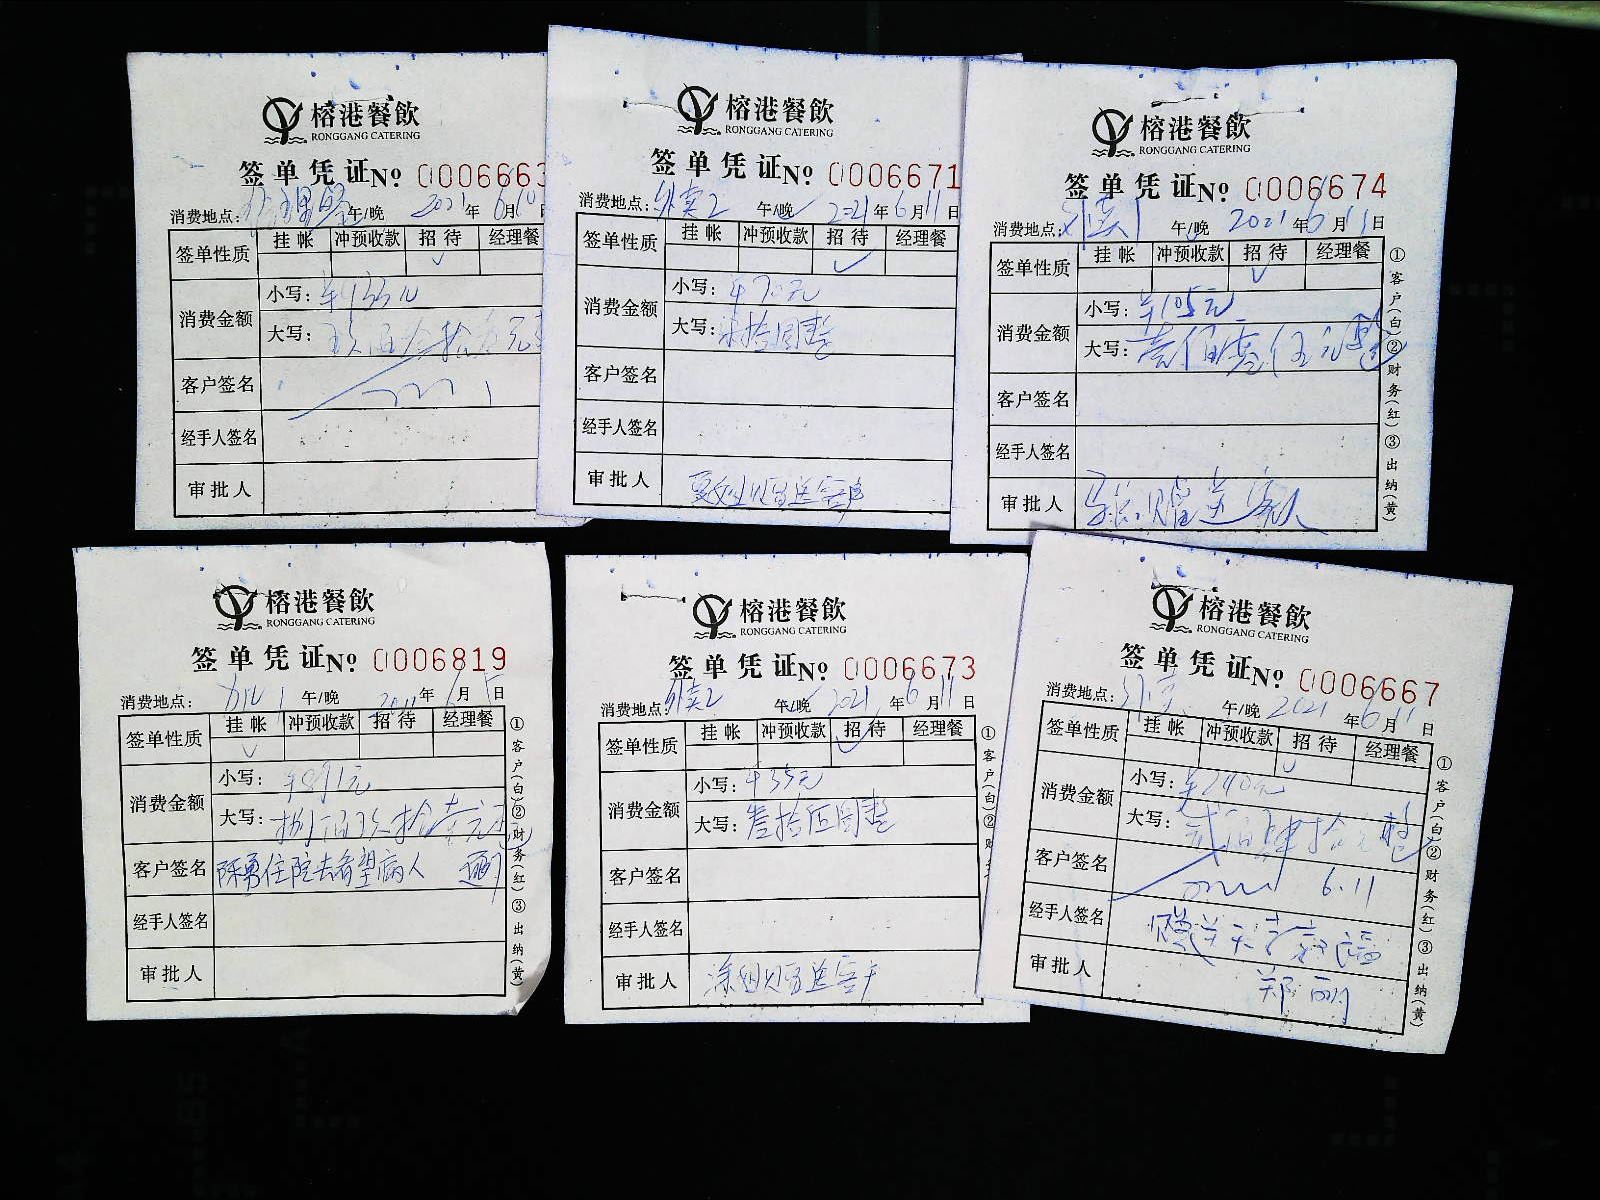 榕港餐飲
RONGGANG CATERING
签单凭证No 0006663
消费地点: 经理餐 午/晚 2021年6月10日
签单性质 挂帐 冲预收款 招待 经理餐
消费金额 小写:
大写:
客户签名
经手人签名
审批人
榕港餐飲
RONGGANG CATERING
签单凭证No 0006671
消费地点: 外卖2 午/晚 2021年6月11日
签单性质 挂帐 冲预收款 招待 经理餐
消费金额 小写: ¥70元
大写: 柒拾圆整
客户签名
经手人签名
审批人 送客户
榕港餐飲
RONGGANG CATERING
签单凭证No 0006674
消费地点: 外卖1 午/晚 2021年6月11日
签单性质 挂帐 冲预收款 招待 经理餐
消费金额 小写: ¥105元
大写: 壹佰零伍元整
客户签名
经手人签名
审批人 赠送客人
①客户(白)②财务(红)③出纳(黄)
榕港餐飲
RONGGANG CATERING
签单凭证No 0006819
消费地点: 午/晚 年6月日
签单性质 挂帐 冲预收款 招待 经理餐
消费金额 小写: ¥891元
大写: 捌佰玖拾壹元
客户签名 陈勇住院去看望病人
经手人签名
审批人
①客户(白)②财务(红)③出纳(黄)
榕港餐飲
RONGGANG CATERING
签单凭证No 0006673
消费地点: 外卖2 午/晚 2021年6月11日
签单性质 挂帐 冲预收款 招待 经理餐
消费金额 小写: ¥35元
大写: 叁拾伍圆整
客户签名
经手人签名
审批人 涂姐 送客户
①客户(白)②
榕港餐飲
RONGGANG CATERING
签单凭证No 0006667
消费地点: 外卖 午/晚 2021年6月11日
签单性质 挂帐 冲预收款 招待 经理餐
消费金额 小写: ¥240元
大写: 贰佰肆拾元整
客户签名 6.11
经手人签名 赠送
审批人 郑丽
①客户(白)②财务(红)③出纳(黄)